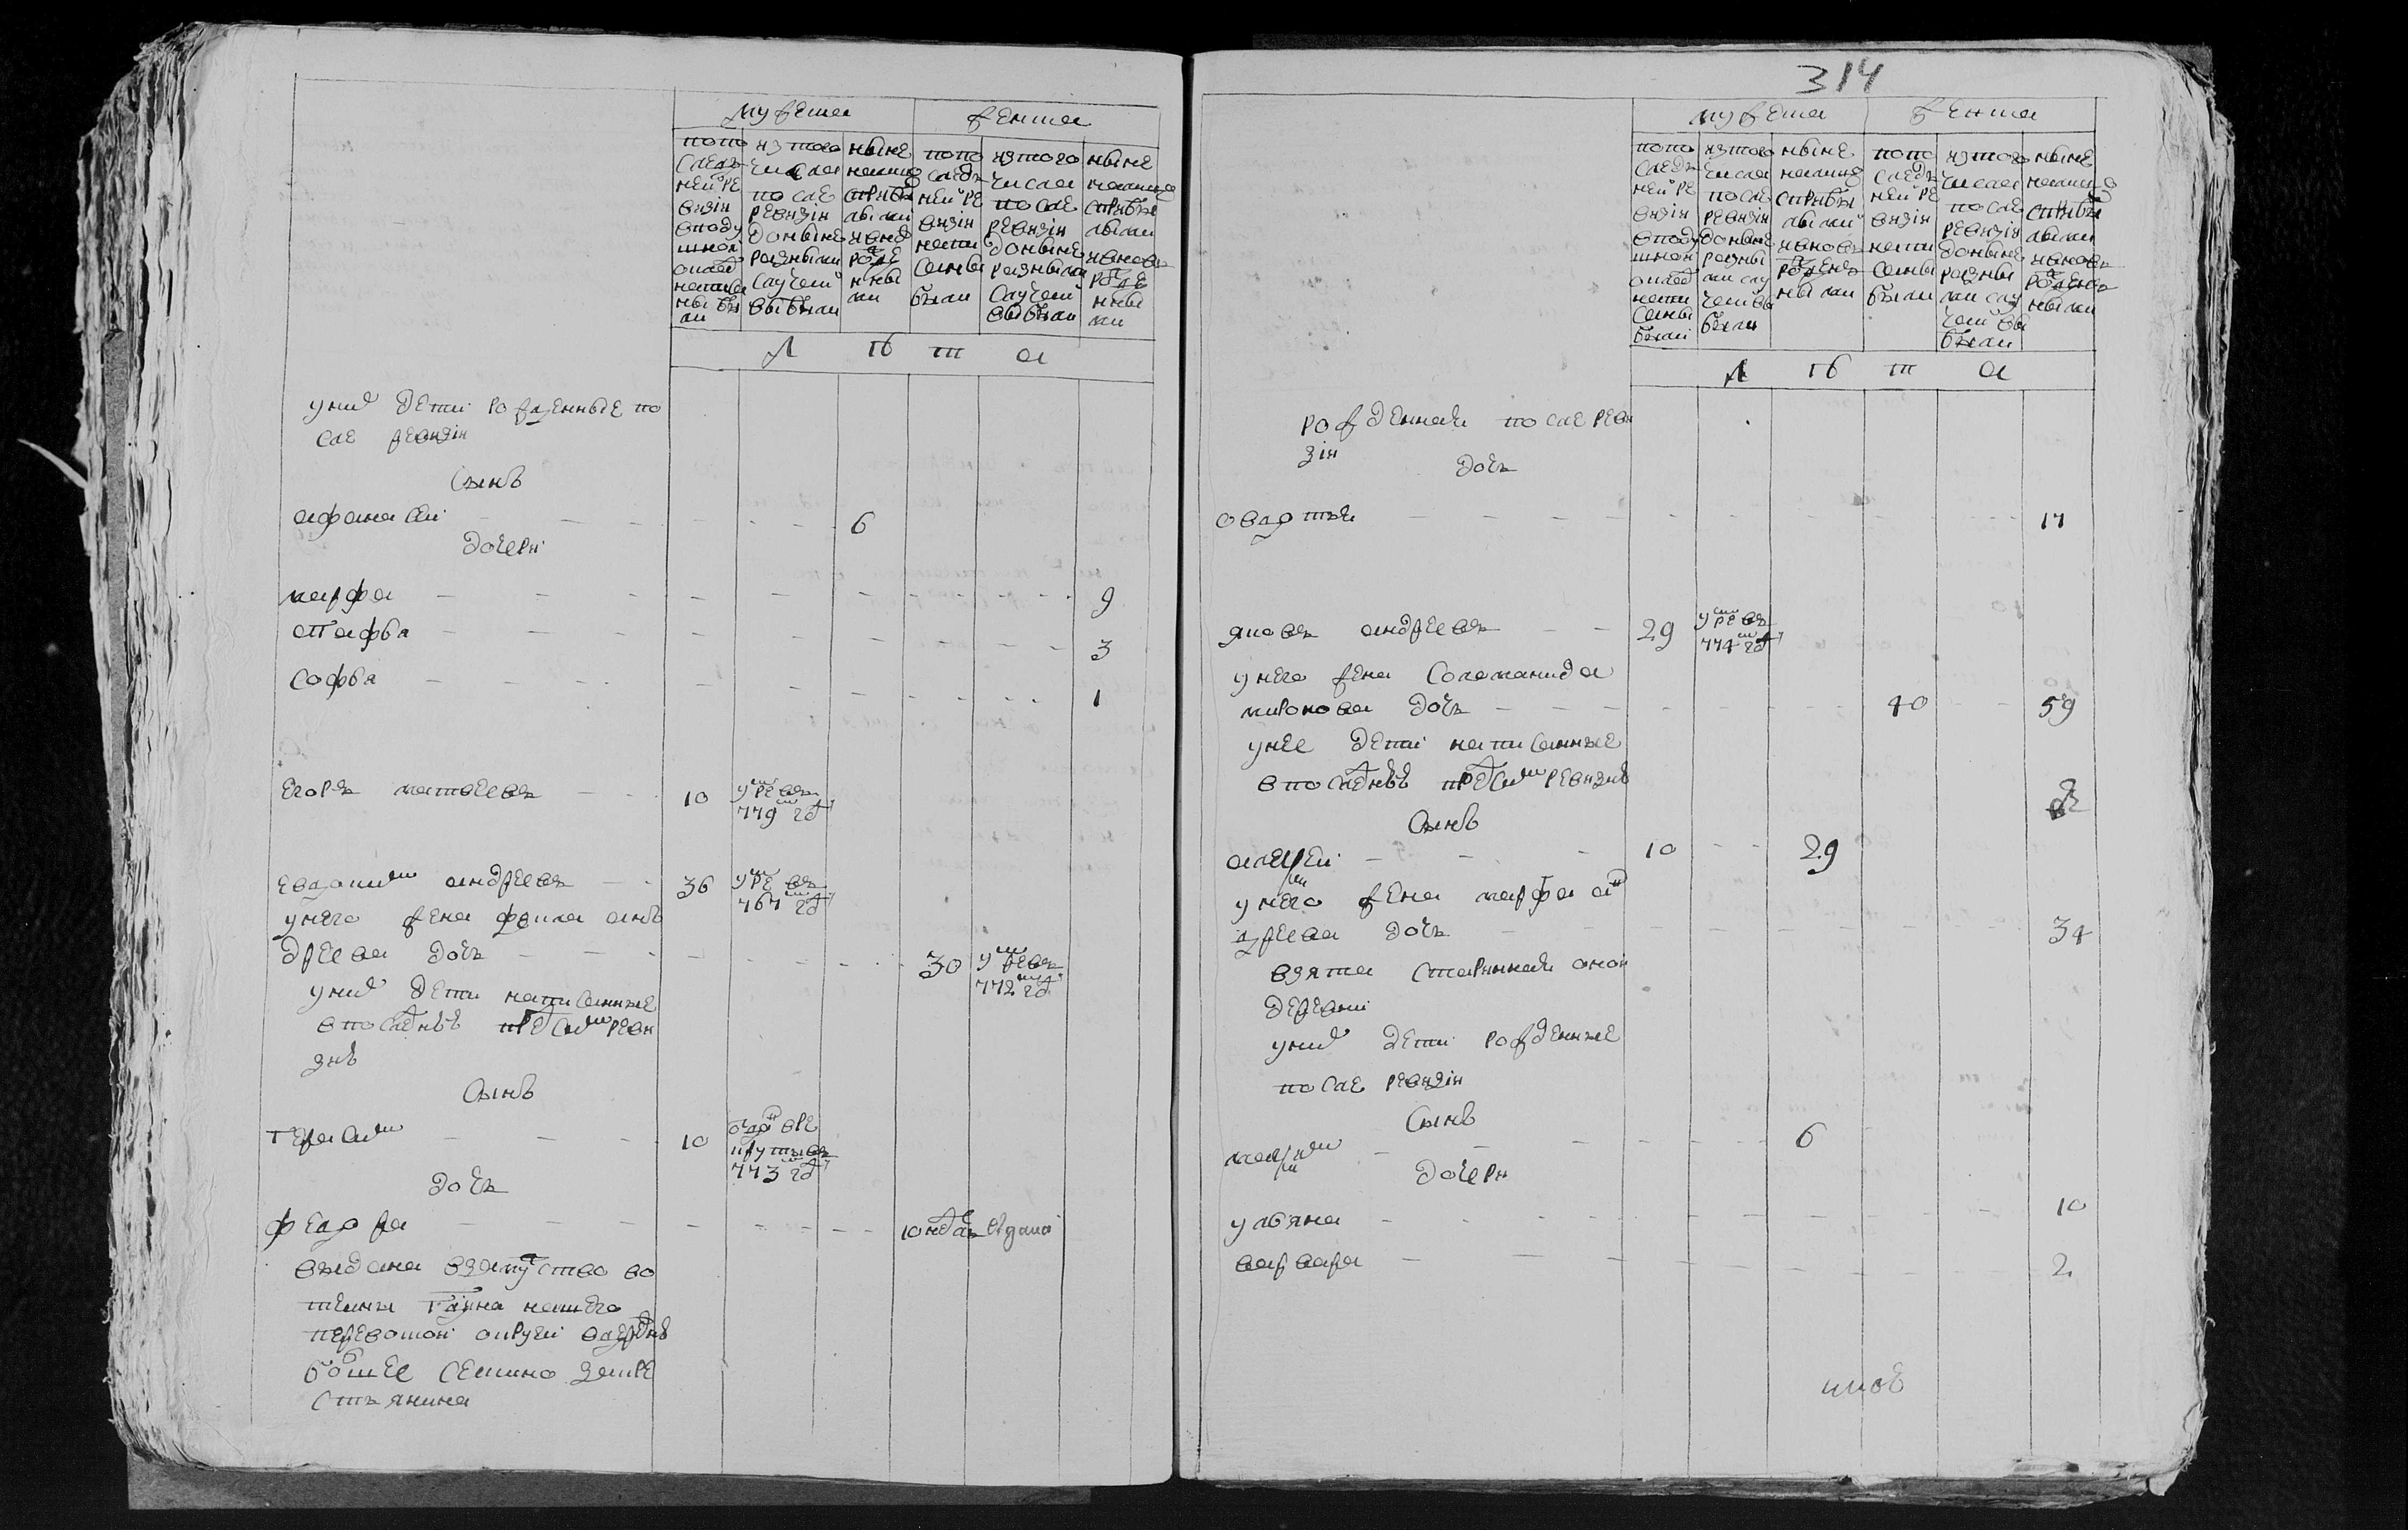 мужеска
женска
по по
следъ
ней ре
визіи
в поду
шной
оклад
написа
ны бы
ли
из того
числа
после
ревизіи
до ныне
разными
случеи
выбыли
ныне
налицо
с прибы
лыми
и внов
роже
нны
ми
по по
следъ
ней ре
визіи
напи
саны
были
из того
числа
после
ревизіи
до ныне
разными
случеи
выбыли
ныне
налицо
с прибы
лыми
и вновь
роже
нны
ми
л ѣ т а
у них дети рожденные по
сле ревизіи
сынъ
афанасеи 6
дочери
марфа 9
агафья 3
софья 1
егоръ матвеевъ 10 умре въ
779м год
евдоким андреевъ 36 умре въ
767м год
у него жена фекла анъ
дреева дочь 30 умре въ
772м год
у них дети написанные
в последнеѣ пред сим реви
зиѣ
сынъ
герасим 10 отдан в ре
круты въ
773м год
дочь
федора 10
выдана в замужство во
перевотои округи в деревню
стьянина
314
мужеска
женска
по по
следъ
ней ре
визіи
в поду
шной
оклад
напи
саны
были
из того
числа
после
ревизіи
до ныне
разны
ми слу
чеи вы
были
ныне
налицо
с прибы
лыми
и вновь
рожен
ными
по по
следъ
ней ре
визіи
напи
саны
были
из того
числа
после
ревизіи
до ныне
разны
ми слу
чеи вы
были
ныне
налицо
с прибы
лыми
и вновь
рожен
ными
л ѣ т а
рожденная после реви
зіи
дочь
овдотья 17
яковъ андреевъ 29 умре въ
774м год
у него жена соломанида
миронова дочь 40 59
у нее дети написанные
в последнеѣ пред сим ревизиѣ
сынъ
алексеи 10 29
у него жена марфа ан
дреева дочь 34
взята старинная онои
деревни
у них дети рожденные
после ревизіи
сынъ
максим 6
дочери
ульяна 10
варвара 2